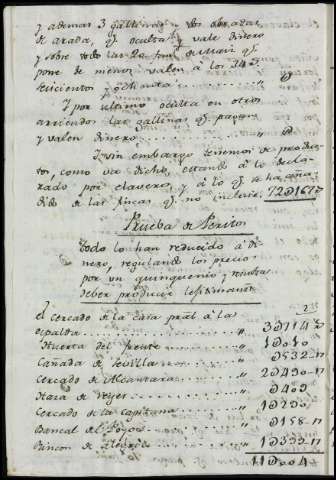 y ademas 3 gallinas y dos
de arada, q.e oculta y vale dinero
y sobre todo las 20 fan.s de q.e
pone de menos valen á los 14
seiscientos y ochenta
Y por ultimo oculta en otros
arriendos las gallinas q.e pagan
y valen dinero
Y sin embargo tenemos de produc
to, como va dicho, estando á lo decla-
rado por claveros, y á lo q.e se ha aña
dido de las fincas q.e no incluie. 72@167
Prueba de Peritos
Todo lo han reducido á di-
nero, regulando los precios
por un quinquenio, y
deber producir lexitimamte
El cercado de la casa pral á la
espalda 3@714
Huerta del frente 1@010
Cañada de Sevilla @532..17
Cercado de Alcantara 2@490..17
Haza de Veger @409
Cercado de la capitana 1@290
Bancal del Pozo @158..17
Rincon de 1@399..17
11@004